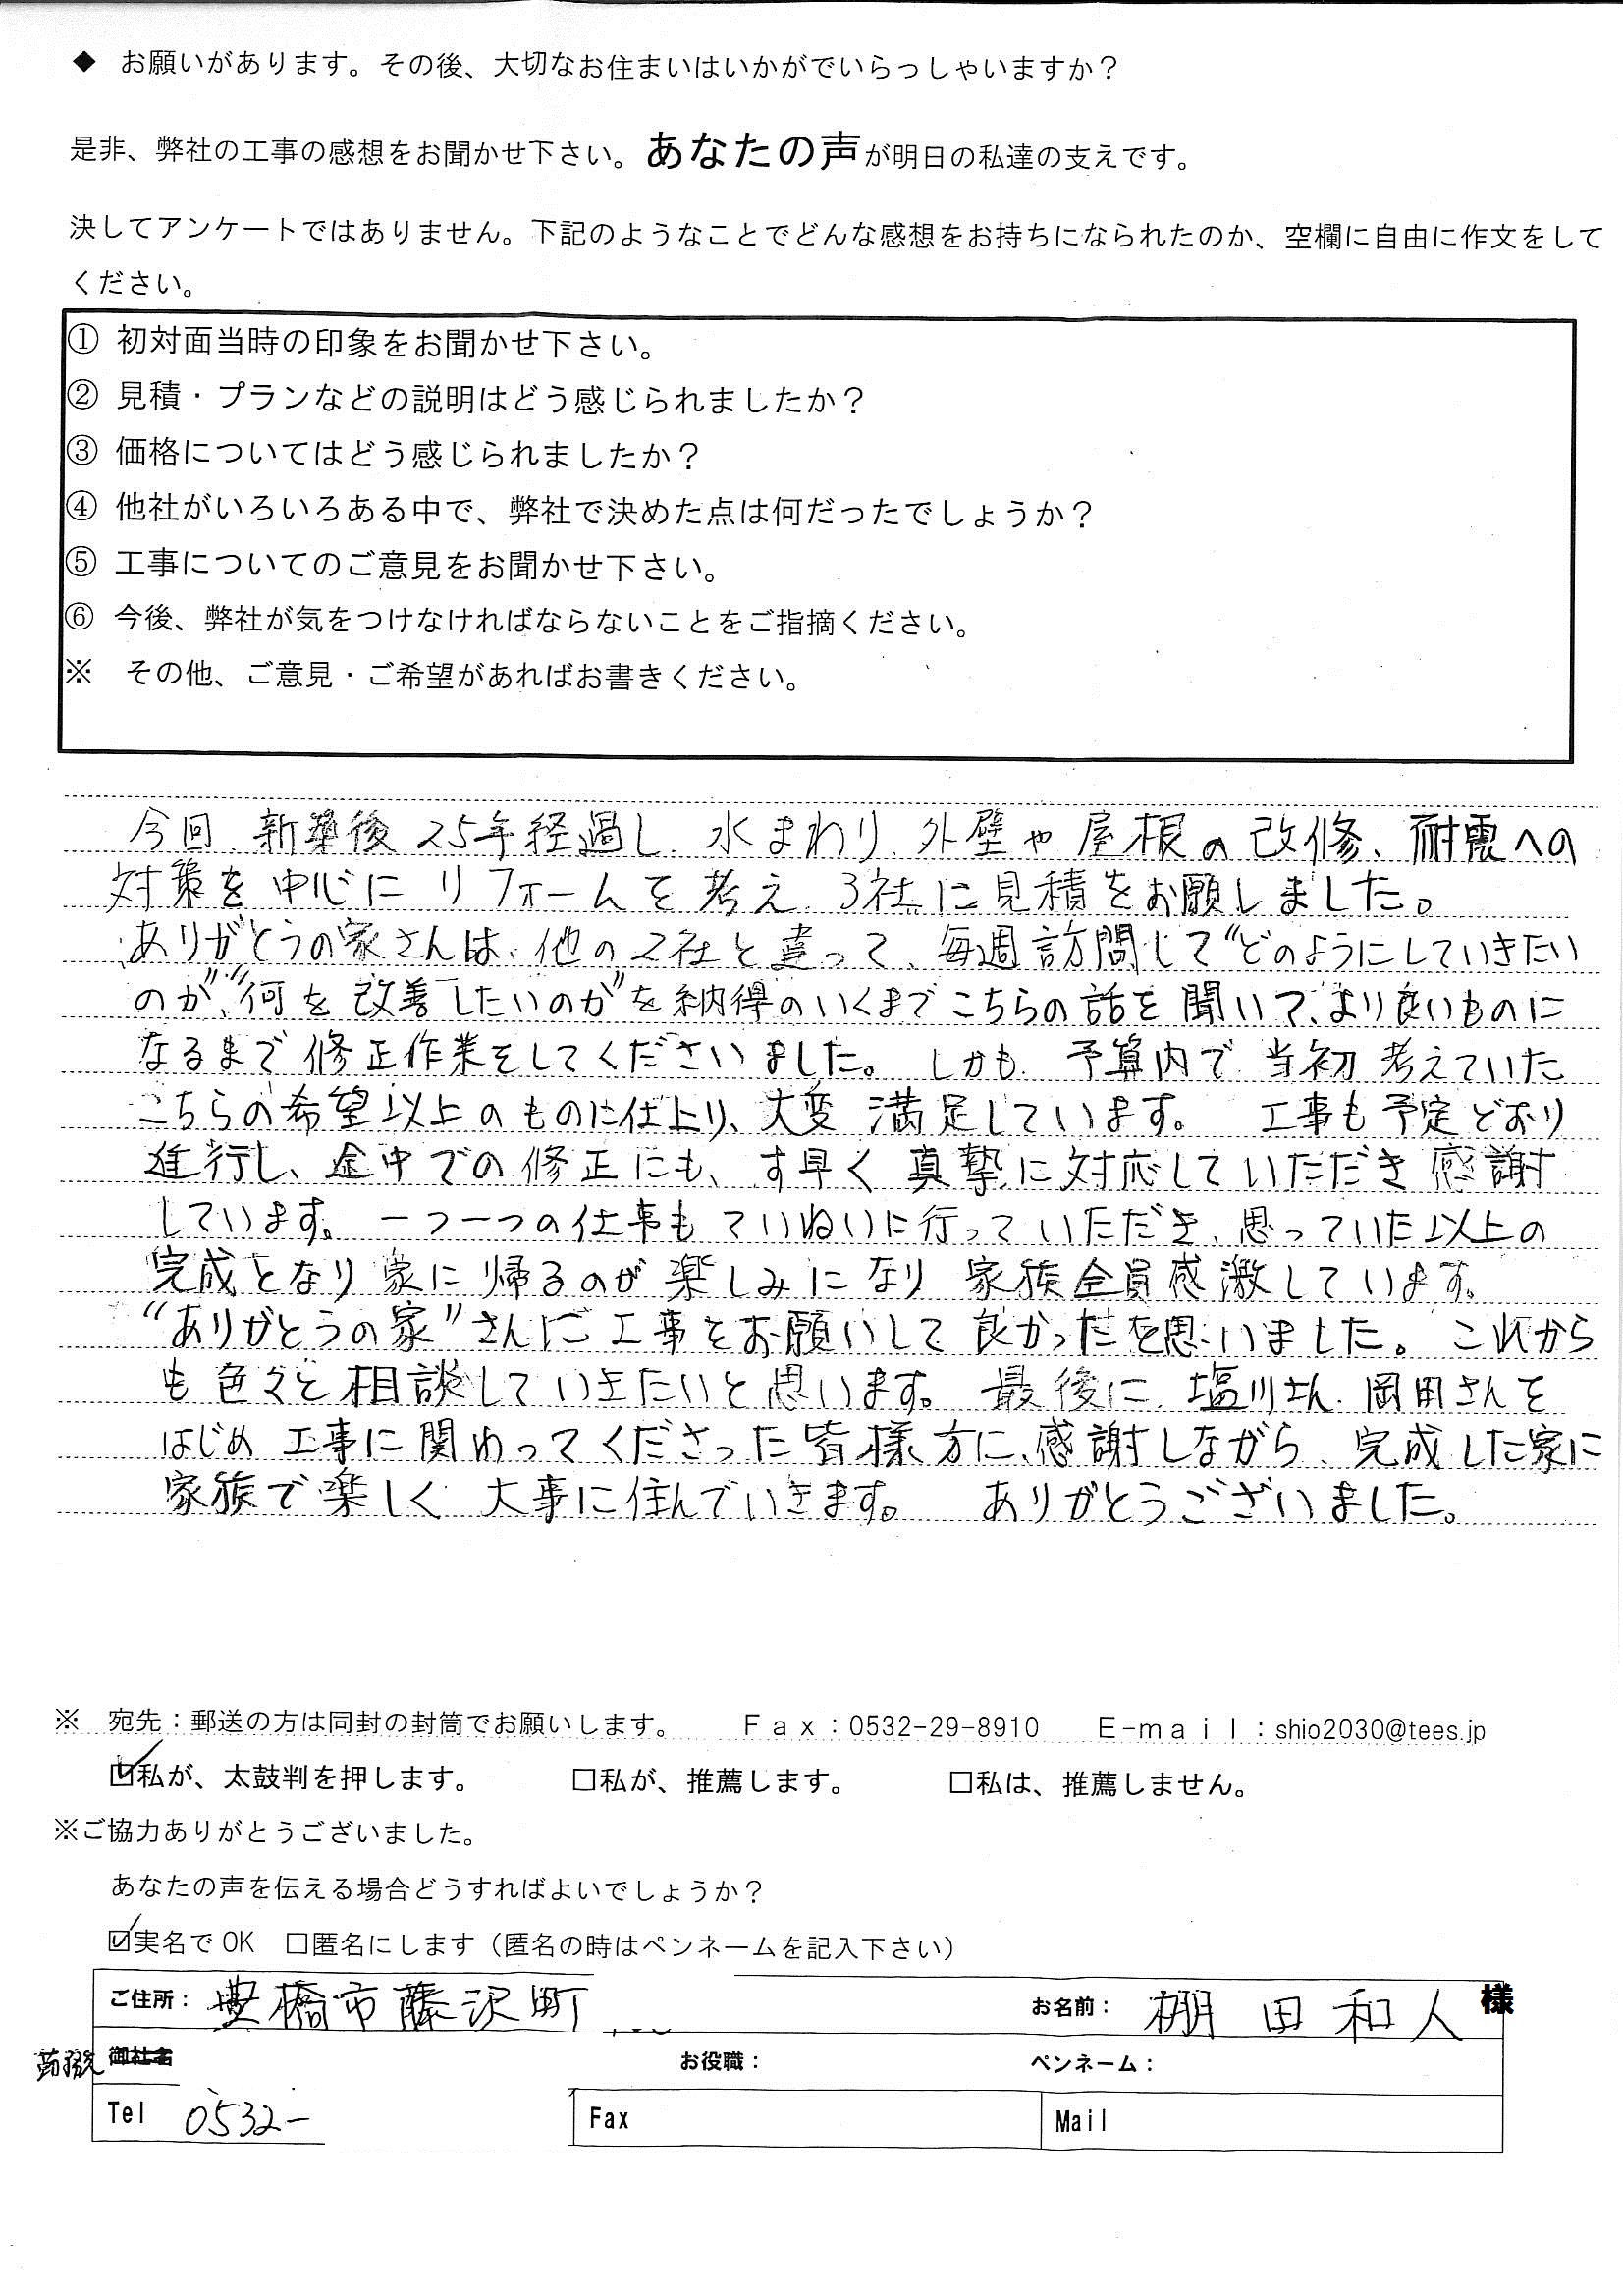 ◆ お願いがあります。その後、大切なお住まいはいかがでいらっしゃいますか？
是非、弊社の工事の感想をお聞かせ下さい。あなたの声が明日の私達の支えです。
決してアンケートではありません。下記のようなことでどんな感想をお持ちになられたのか、空欄に自由に作文をして
ください。
① 初対面当時の印象をお聞かせ下さい。
② 見積・プランなどの説明はどう感じられましたか？
③ 価格についてはどう感じられましたか？
④ 他社がいろいろある中で、弊社で決めた点は何だったでしょうか？
⑤ 工事についてのご意見をお聞かせ下さい。
⑥ 今後、弊社が気をつけなければならないことをご指摘ください。
※ その他、ご意見・ご希望があればお書きください。
今回、新築後25年経過し、水まわり、外壁や屋根の改修、耐震への
対策を中心にリフォームを考え、3社に見積をお願しました。
ありがとうの家さんは、他の2社と違って、毎週訪問して“どのようにしていきたい
のか”、“何を改善したいのか”を納得のいくまでこちらの話を聞いて、より良いものに
なるまで修正作業をしてくださいました。しかも、予算内で当初考えていた
こちらの希望以上のものに仕上り、大変満足しています。工事も予定どおり
進行し、途中での修正にも、す早く真摯に対応していただき感謝
しています。一つ一つの仕事もていねいに行っていただき、思っていた以上の
完成となり家に帰るのが楽しみになり家族全員感激しています。
“ありがとうの家”さんに工事をお願いして良かったを思いました。これから
も色々と相談していきたいと思います。最後に、塩川さん、岡田さんを
はじめ工事に関わってくださった皆様方に、感謝しながら、完成した家に
家族で楽しく、大事に住んでいきます。ありがとうございました。
※ 宛先：郵送の方は同封の封筒でお願いします。 Ｆａｘ：0532-29-8910 Ｅ-ｍａｉｌ：shio2030@tees.jp
☑私が、太鼓判を押します。 □私が、推薦します。 □私は、推薦しません。
※ご協力ありがとうございました。
あなたの声を伝える場合どうすればよいでしょうか？
☑実名でOK □匿名にします（匿名の時はペンネームを記入下さい）
ご住所： 豊橋市藤沢町 お名前： 棚田和人 様
御社名 お役職： ペンネーム：
Tel 0532- Fax Mail